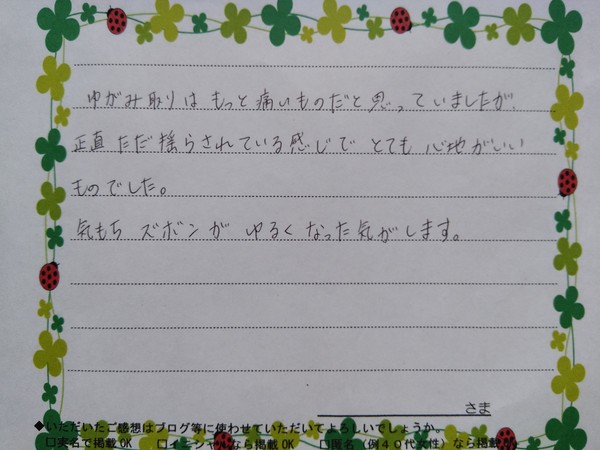 ゆがみ取りはもっと痛いものだと思っていましたが、
正直ただ揺らされている感じでとても心地がいい
ものでした。
気もちズボンがゆるくなった気がします。
さま
◆いただいたご感想はブログ等に使わせていただいてよろしいでしょうか。
□実名で掲載OK □イニシャルなら掲載OK □匿名(例40代女性)なら掲載OK